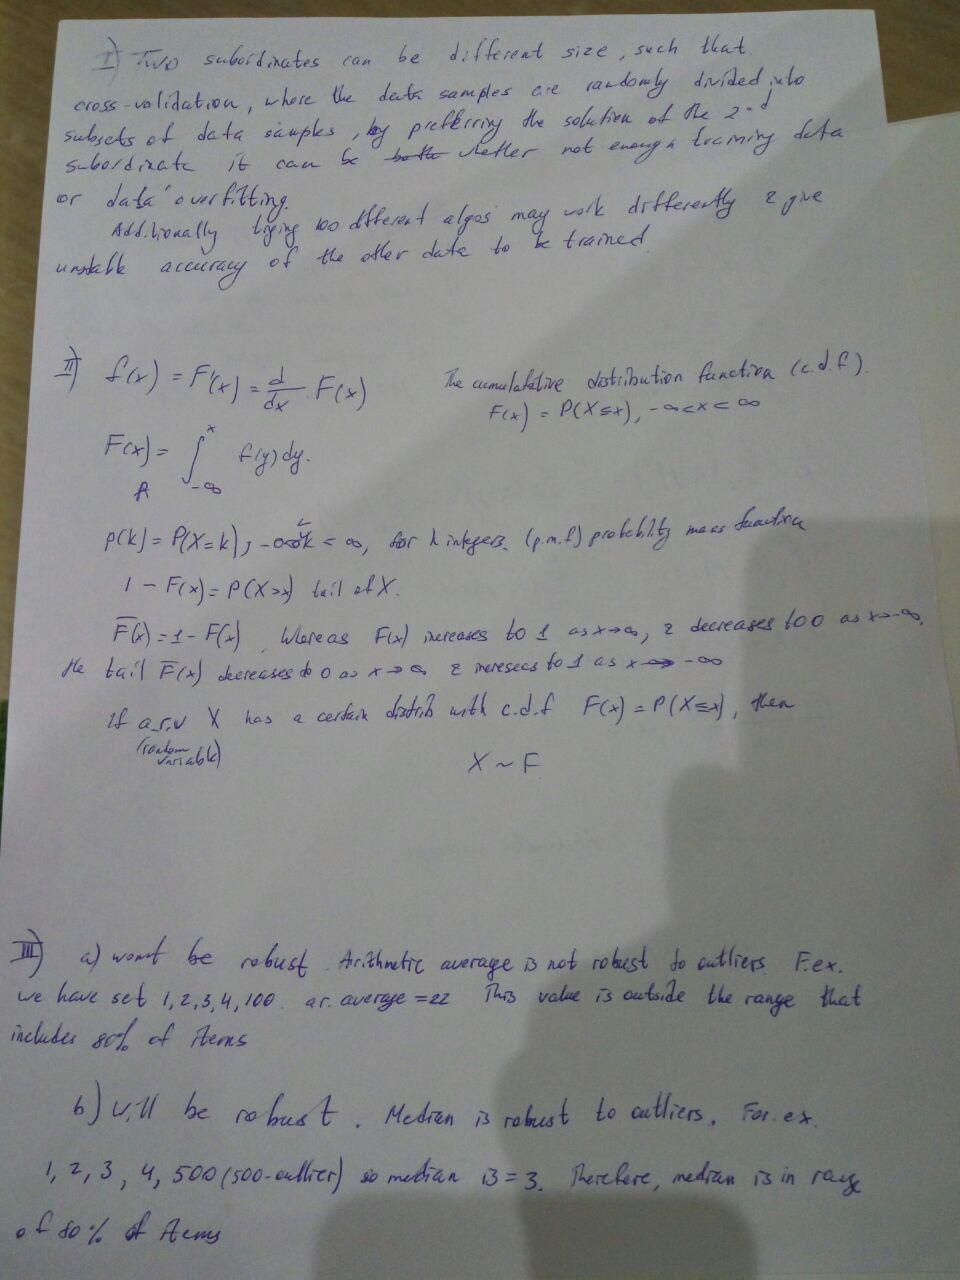 I) Two subordinates can be different size, such that
cross-validation, where the data samples are randomly divided into
subsets of data samples, by preferring the solution of the 2-nd
subordinate it can be whether not enough training data
or data overfitting.
Additionally 100 different algos may work differently & give
unstable accuracy of the other data to be trained
II) f(x) = F'(x) = d/dx F(x) The cumulative distribution function (c.d.f).
F(x) = P(X≤x), -∞<x<∞
F(x) = ∫_{-∞}^{x} f(y)dy.
p(k) = P(X=k), -∞<k<∞, for k integers. (p.m.f) probability mass function
1 - F(x) = P(X>x) tail of X.
F̅(x) = 1 - F(x). Whereas F(x) increases to 1 as x→∞, & decreases to 0 as x→-∞,
the tail F̅(x) decreases to 0 as x→∞ & increses to 1 as x→-∞
If a r.v X has a certain distrib with c.d.f F(x) = P(X≤x), then
(random variable)
X ~ F
III) a) wont be robust. Arithmetic average is not robust to outliers. F.ex.
we have set 1,2,3,4,100. ar. average = 22 This value is outside the range that
includes 80% of items
b) will be robust. Median is robust to outliers. For.ex.
1, 2, 3, 4, 500 (500-outlier) so median is = 3. Therefore, median is in range
of 80% of items